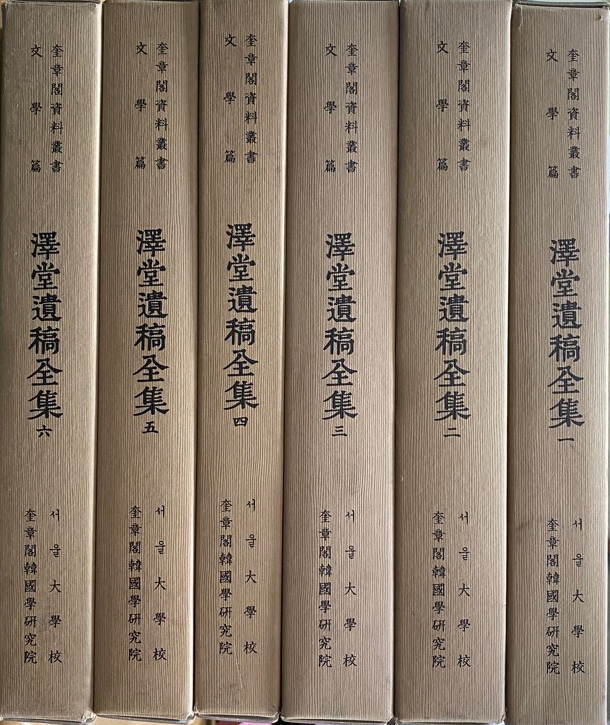 奎章閣資料叢書
文學篇
澤堂遺稿全集 一
서울大學校
奎章閣韓國學研究院
奎章閣資料叢書
文學篇
澤堂遺稿全集 二
서울大學校
奎章閣韓國學研究院
奎章閣資料叢書
文學篇
澤堂遺稿全集 三
서울大學校
奎章閣韓國學研究院
奎章閣資料叢書
文學篇
澤堂遺稿全集 四
서울大學校
奎章閣韓國學研究院
奎章閣資料叢書
文學篇
澤堂遺稿全集 五
서울大學校
奎章閣韓國學研究院
奎章閣資料叢書
文學篇
澤堂遺稿全集 六
서울大學校
奎章閣韓國學研究院